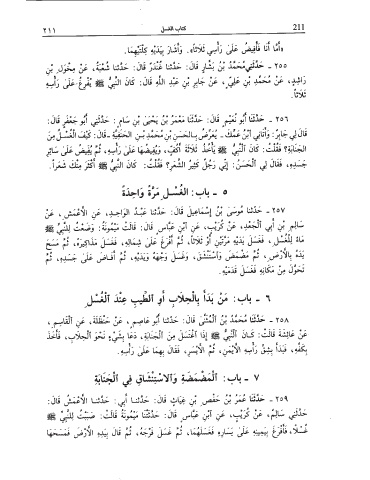 ٢١١ كتاب الغسل 211
«أَمَّا أَنَا فَأُفِيضُ عَلَى رَأْسِي ثَلَاثًا». وَأَشَارَ بِيَدَيْهِ كِلْتَيْهِمَا.
٢٥٥ - حَدَّثَنِي مُحَمَّدُ بْنُ بَشَّارٍ قَالَ: حَدَّثَنَا غُنْدَرٌ قَالَ: حَدَّثَنَا شُعْبَةُ، عَنْ مِخْوَلِ بْنِ
رَاشِدٍ، عَنْ مُحَمَّدِ بْنِ عَلِيٍّ، عَنْ جَابِرِ بْنِ عَبْدِ اللهِ قَالَ: كَانَ النَّبِيُّ ﷺ يُفْرِغُ عَلَى رَأْسِهِ
ثَلَاثًا.
٢٥٦ - حَدَّثَنَا أَبُو نُعَيْمٍ قَالَ: حَدَّثَنَا مَعْمَرُ بْنُ يَحْيَى بْنِ سَامٍ: حَدَّثَنِي أَبُو جَعْفَرٍ قَالَ:
قَالَ لِي جَابِرٌ: وَأَتَانِي ابْنُ عَمِّكَ - يُعَرِّضُ بِالْحَسَنِ بْنِ مُحَمَّدِ بْنِ الْحَنَفِيَّةِ - قَالَ: كَيْفَ الْغُسْلُ مِنَ
الْجَنَابَةِ؟ فَقُلْتُ: كَانَ النَّبِيُّ ﷺ يَأْخُذُ ثَلَاثَةَ أَكُفٍّ، وَيُفِيضُهَا عَلَى رَأْسِهِ، ثُمَّ يُفِيضُ عَلَى سَائِرِ
جَسَدِهِ، فَقَالَ لِي الْحَسَنُ: إِنِّي رَجُلٌ كَثِيرُ الشَّعَرِ؟ فَقُلْتُ: كَانَ النَّبِيُّ ﷺ أَكْثَرَ مِنْكَ شَعَرًا.
٥ - باب: الْغُسْلِ مَرَّةً وَاحِدَةً
٢٥٧ - حَدَّثَنَا مُوسَى بْنُ إِسْمَاعِيلَ قَالَ: حَدَّثَنَا عَبْدُ الْوَاحِدِ، عَنِ الْأَعْمَشِ، عَنْ
سَالِمِ بْنِ أَبِي الْجَعْدِ، عَنْ كُرَيْبٍ، عَنِ ابْنِ عَبَّاسٍ قَالَ: قَالَتْ مَيْمُونَةُ: وَضَعْتُ لِلنَّبِيِّ ﷺ
مَاءً لِلْغُسْلِ، فَغَسَلَ يَدَيْهِ مَرَّتَيْنِ أَوْ ثَلَاثًا، ثُمَّ أَفْرَغَ عَلَى شِمَالِهِ، فَغَسَلَ مَذَاكِيرَهُ، ثُمَّ مَسَحَ
يَدَهُ بِالْأَرْضِ، ثُمَّ مَضْمَضَ وَاسْتَنْشَقَ، وَغَسَلَ وَجْهَهُ وَيَدَيْهِ، ثُمَّ أَفَاضَ عَلَى جَسَدِهِ، ثُمَّ
تَحَوَّلَ مِنْ مَكَانِهِ فَغَسَلَ قَدَمَيْهِ.
٦ - باب: مَنْ بَدَأَ بِالْحِلَابِ أَوِ الطِّيبِ عِنْدَ الْغُسْلِ
٢٥٨ - حَدَّثَنَا مُحَمَّدُ بْنُ الْمُثَنَّى قَالَ: حَدَّثَنَا أَبُو عَاصِمٍ، عَنْ حَنْظَلَةَ، عَنِ الْقَاسِمِ،
عَنْ عَائِشَةَ قَالَتْ: كَانَ النَّبِيُّ ﷺ إِذَا اغْتَسَلَ مِنَ الْجَنَابَةِ، دَعَا بِشَيْءٍ نَحْوَ الْحِلَابِ، فَأَخَذَ
بِكَفِّهِ، فَبَدَأَ بِشِقِّ رَأْسِهِ الْأَيْمَنِ، ثُمَّ الْأَيْسَرِ، فَقَالَ بِهِمَا عَلَى رَأْسِهِ.
٧ - باب: الْمَضْمَضَةِ وَالِاسْتِنْشَاقِ فِي الْجَنَابَةِ
٢٥٩ - حَدَّثَنَا عُمَرُ بْنُ حَفْصِ بْنِ غِيَاثٍ قَالَ: حَدَّثَنَا أَبِي: حَدَّثَنَا الْأَعْمَشُ قَالَ:
حَدَّثَنِي سَالِمٌ، عَنْ كُرَيْبٍ، عَنِ ابْنِ عَبَّاسٍ قَالَ: حَدَّثَتْنَا مَيْمُونَةُ قَالَتْ: صَبَبْتُ لِلنَّبِيِّ ﷺ
غُسْلًا، فَأَفْرَغَ بِيَمِينِهِ عَلَى يَسَارِهِ فَغَسَلَهُمَا، ثُمَّ غَسَلَ فَرْجَهُ، ثُمَّ قَالَ بِيَدِهِ الْأَرْضَ فَمَسَحَهَا